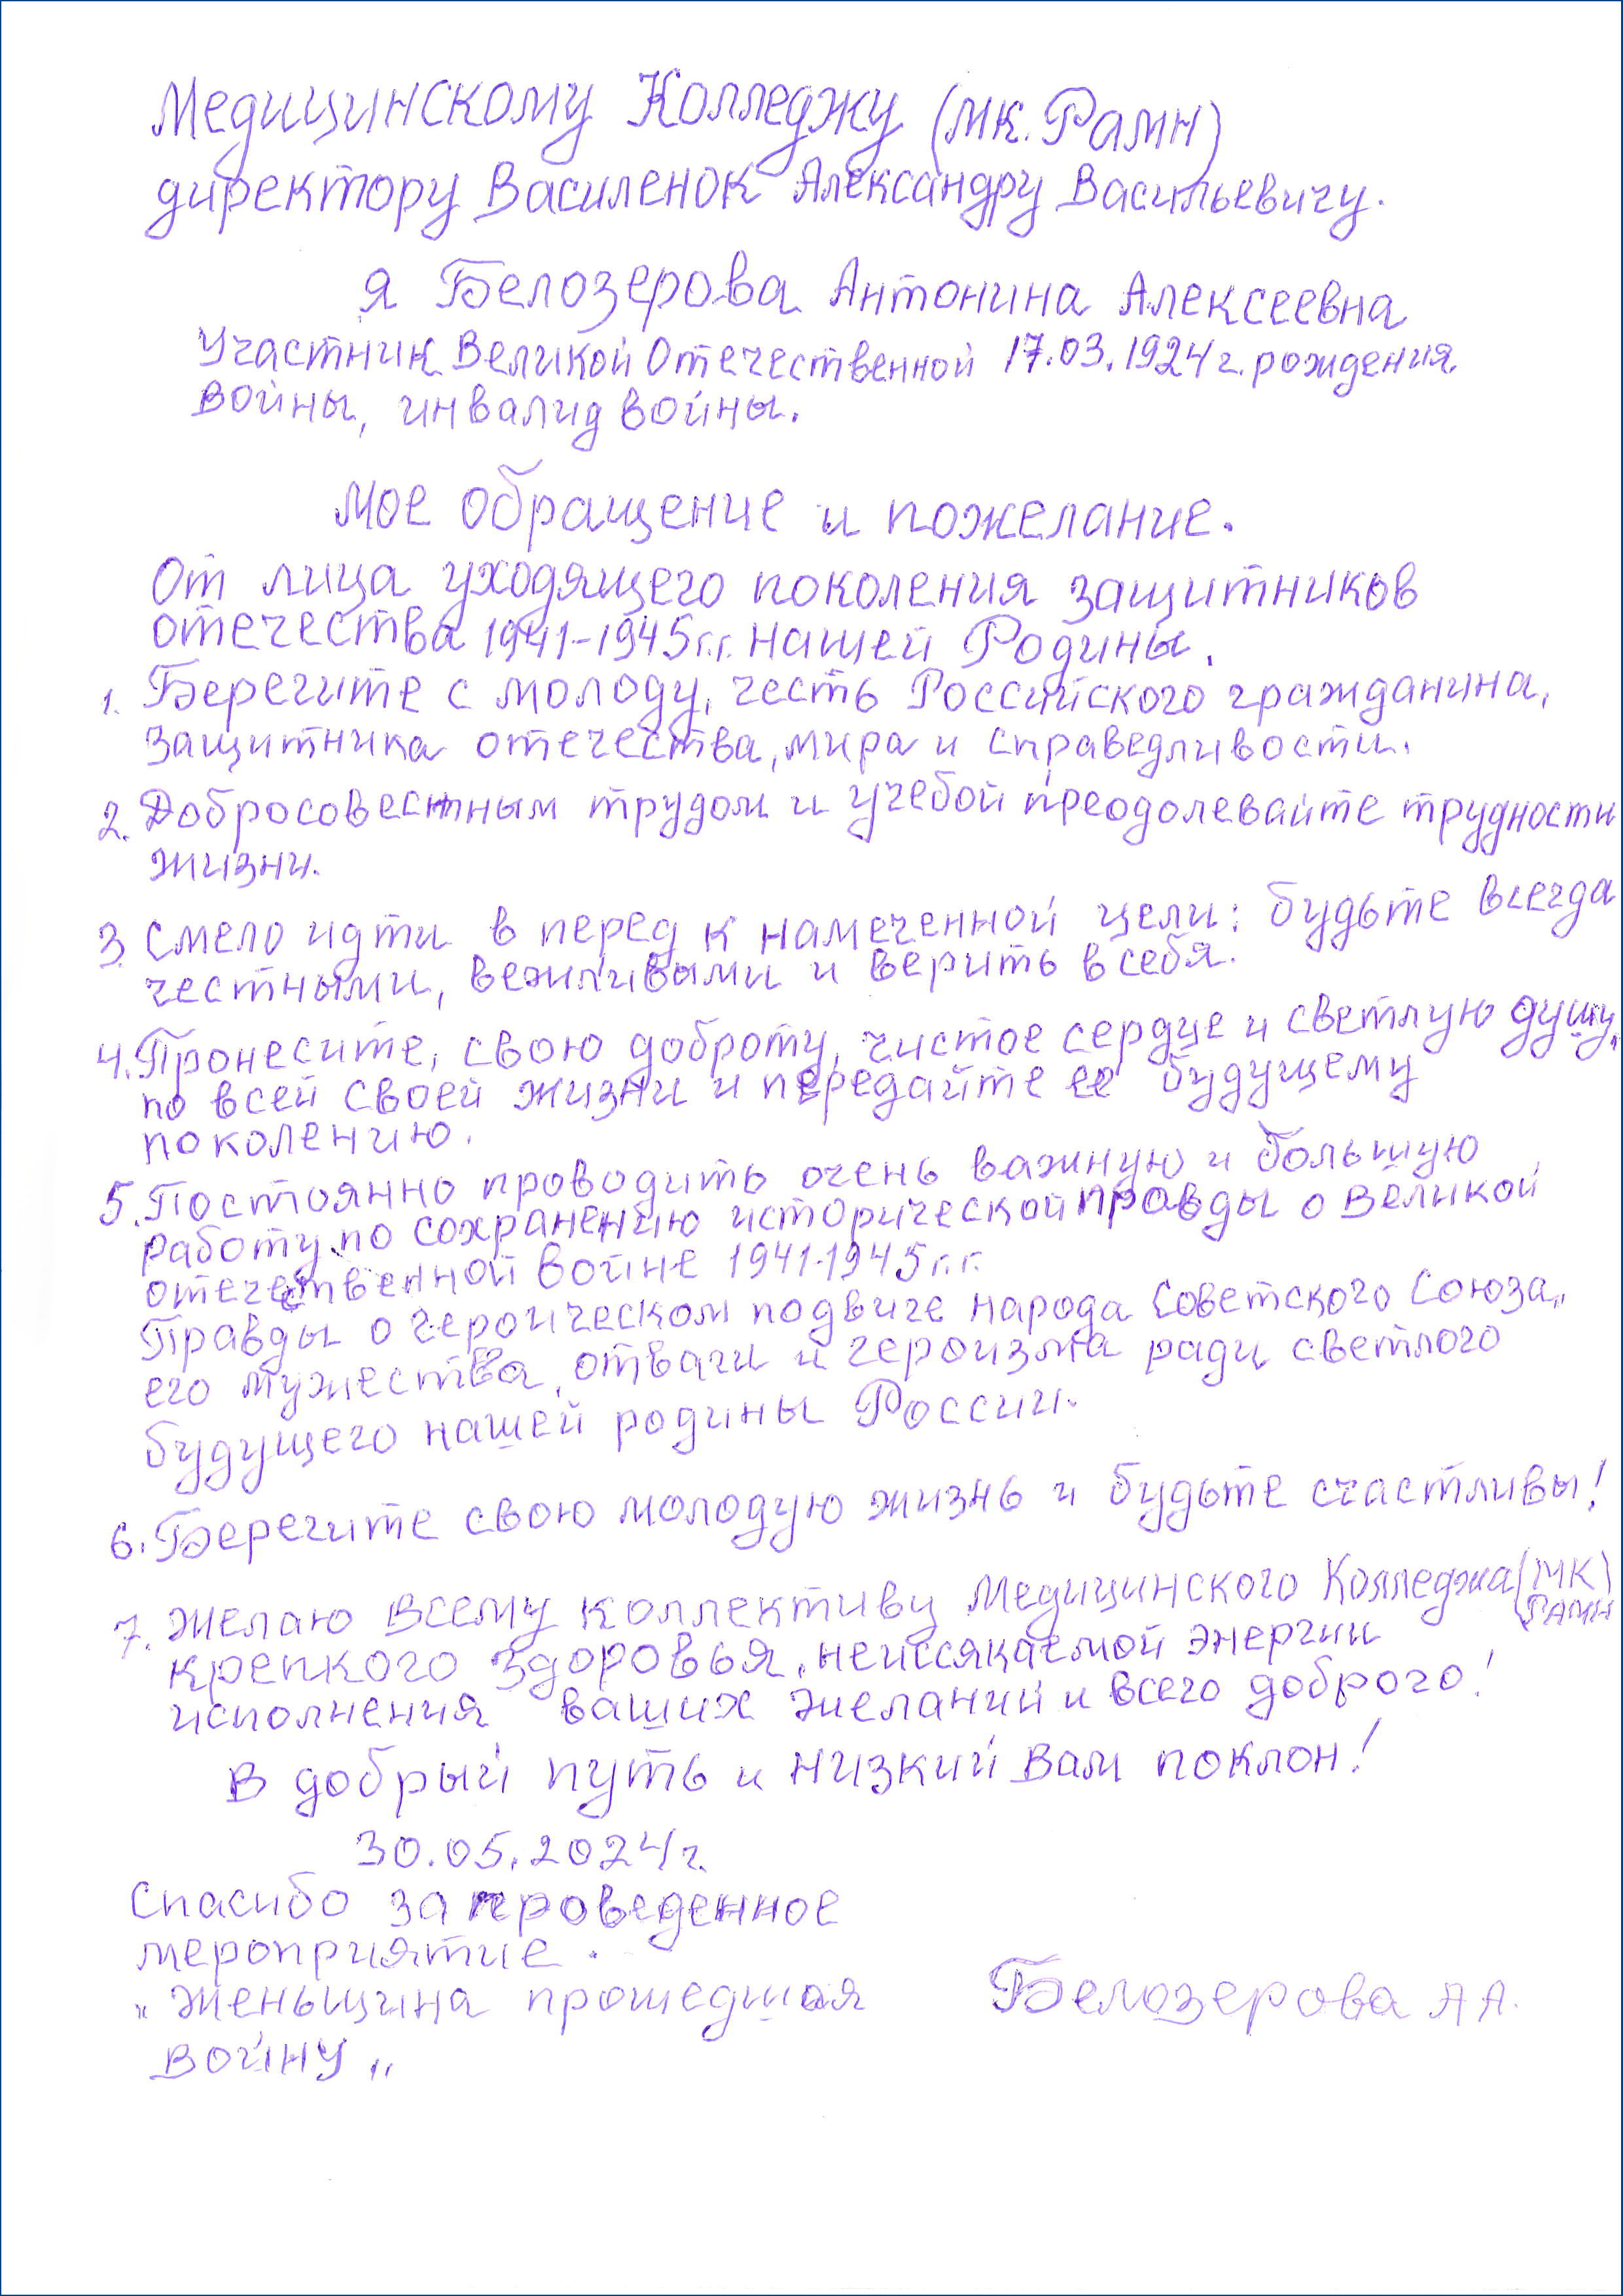 Медицинскому Колледжу (МК. Рамн)
директору Василенок Александру Васильевичу.
я Белозерова Антонина Алексеевна
Участник Великой Отечественной 17.03.1924 г. рождения.
войны, инвалид войны.
Мое обращение и пожелание.
От лица уходящего поколения защитников
отечества 1941-1945 г.г. нашей Родины.
1. Берегите с молоду, честь Российского гражданина,
защитника отечества, мира и справедливости.
2. Добросовестным трудом и учебой преодолевайте трудности
жизни.
3 Смело идти в перед к намеченной цели: будьте всегда
честными, вежливыми и верить в себя.
4. Пронесите, свою доброту, чистое сердце и светлую душу,
по всей своей жизни и передайте ее будущему
поколению.
5. Постоянно проводить очень важную и большую
работу по сохранению исторической правды о Великой
отечественной войне 1941-1945 г.г.
Правды о героическом подвиге народа Советского Союза,,
его мужества, отваги и героизма ради светлого
будущего нашей родины России.
6. Берегите свою молодую жизнь и будьте счастливы!
7. Желаю всему коллективу Медицинского Колледжа (МК)
РАМН
крепкого здоровья, неиссякаемой энергии
исполнения ваших желаний и всего доброго!
В добрый путь и низкий Вам поклон!
30.05.2024 г.
Спасибо за проведенное
мероприятие.
„ Женьщина прошедшая
войну „
Белозерова А А.